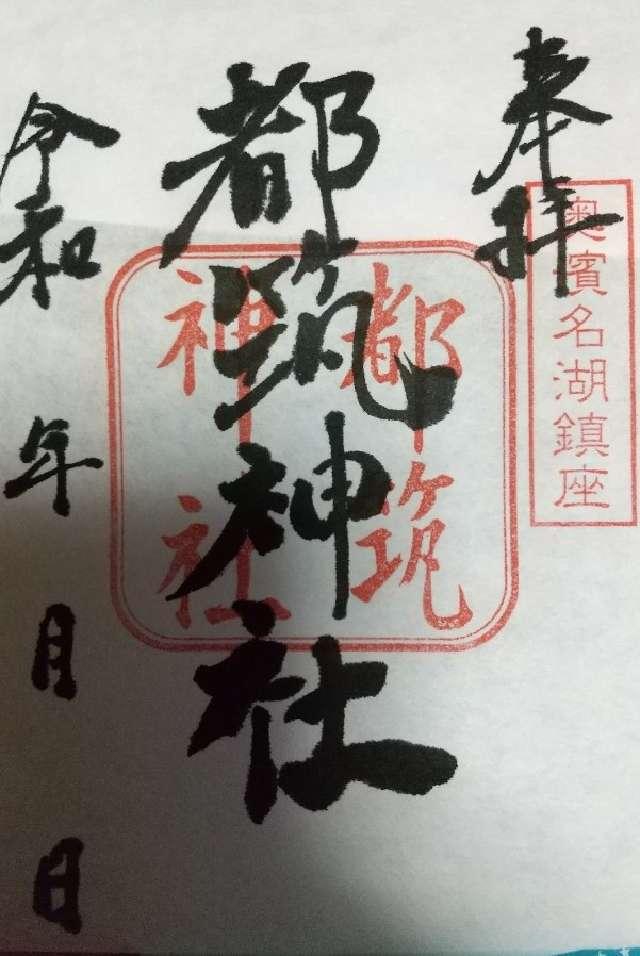 奉拝
奥濱名湖鎮座
都筑神社
都筑
神社
令和 年 月 日